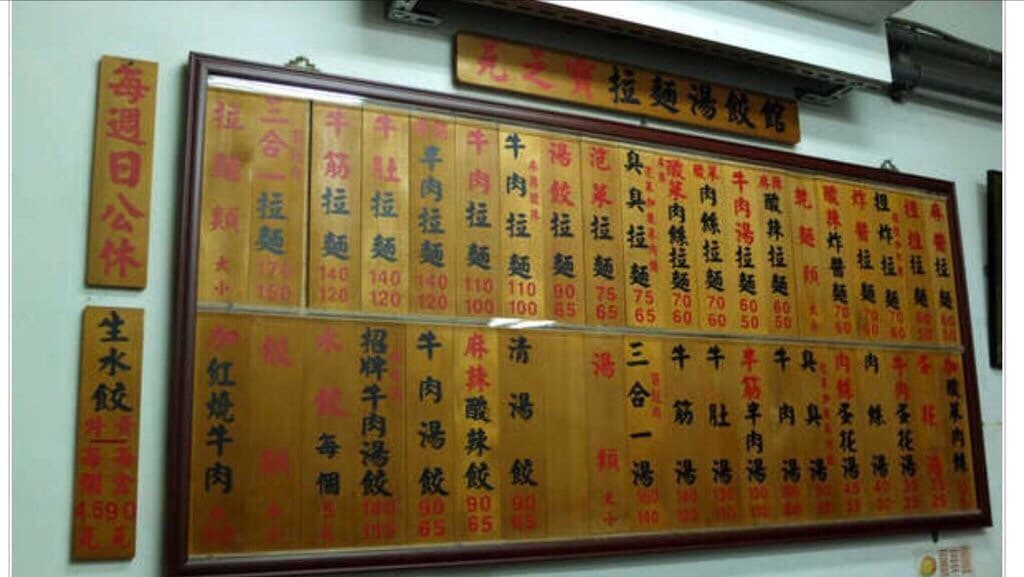 元之寶拉麵湯餃館
每週日公休
生水餃
每個
每盒
4.5
90
元
元
拉麵類
大小
三合一拉麵
170
150
牛筋拉麵
140
120
牛肚拉麵
140
120
羊肉拉麵
140
120
牛肉拉麵
110
100
牛肉拉麵
麻辣酸辣
110
100
湯餃拉麵
90
65
泡菜拉麵
75
65
臭臭拉麵
75
65
酸菜肉絲拉麵
70
60
酸菜
肉絲拉麵
70
60
牛肉湯拉麵
60
50
麻辣
酸辣拉麵
60
50
乾麵類
大小
酸辣炸醬麵
70
60
炸醬拉麵
70
60
担炸拉麵
70
60
担担拉麵
60
50
麻醬拉麵
60
50
加紅燒牛肉
餃類
大小
水餃
每個
招牌牛肉湯餃
牛肉湯餃
90
65
麻辣酸辣餃
90
65
清湯餃
90
65
湯類
大小
三合一湯
160
140
牛筋湯
牛肚湯
羊筋羊肉湯
牛肉湯
臭臭湯
肉絲蛋花湯
肉絲湯
牛肉蛋花湯
蛋花湯
加酸菜肉絲